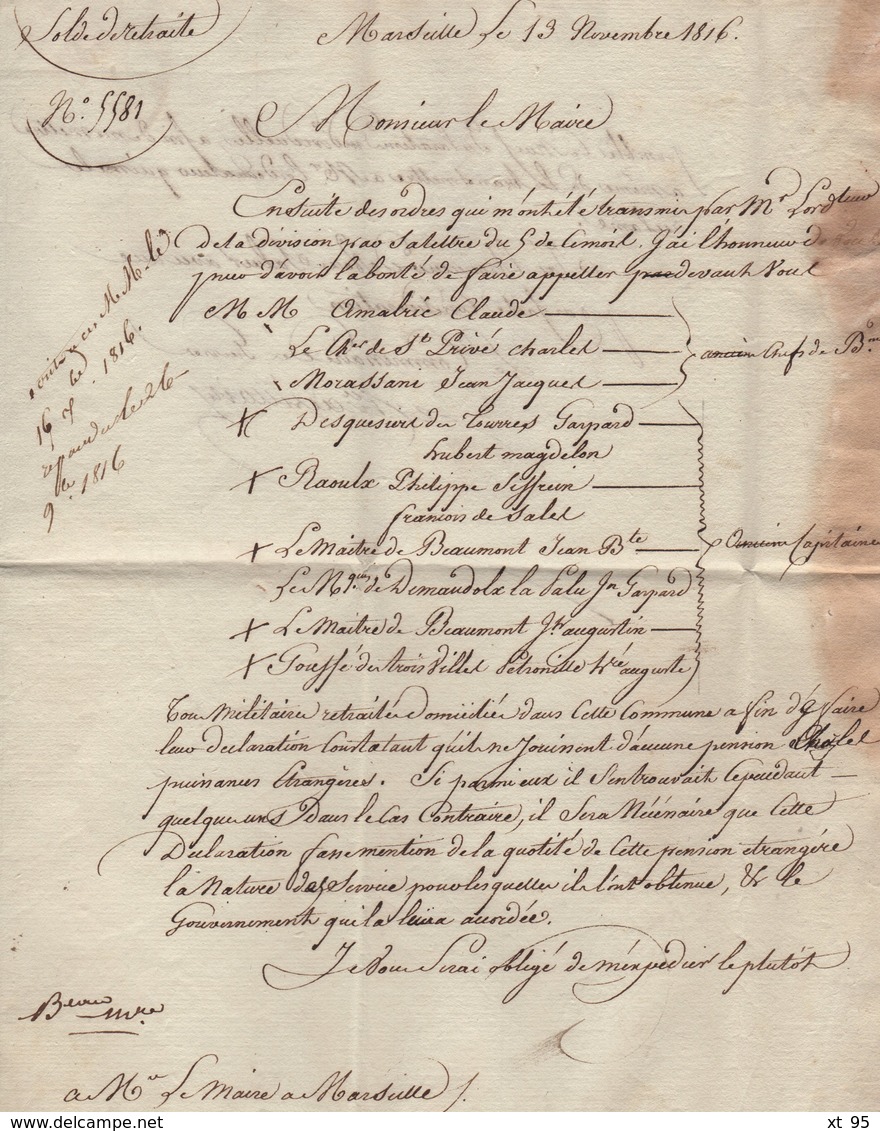 Solde de retraite
Marseille Le 13 Novembre 1816.
N.º 5581
Monsieur le Maire
Ensuite des ordres qui m'ont été transmis par Mr Lord.teur
de la division par sa lettre du 5 de ce mois. J'ai l'honneur de
prier d'avoir la bonté de faire appeller par devant Vous
M M Amalric Claude
Le Cher de St Privé charles
Morassani Jean Jacques
anciens Chefs de B.on
+ Desqueures des Tourres Gaspard
hubert magdelon
+ Raoulx Philippe Seffrein
francois de Sales
+ Le Maitre de Beaumont Jean Bte
anciens Capitaines
Le Mquis de Demandolx la Palu Jn Gaspard
+ Le Maitre de Beaumont Jh augustin
+ Goussé des trois Villes Petronille hré auguste
16 1816.
répondu le 26
9bre 1816
Tous Militaires retraités domiciliés dans Cette Commune a fin d'y faire
leur declaration Constatant qu'ils ne Jouissent d'aucune pension chés les
puissances Etrangères. Si parmi eux il s'en trouvait Cependant
quelques uns Dans le Cas Contraire, il Sera Nécéssaire que Cette
Declaration fasse mention de la quotité de Cette pension etrangére
la Nature des Service pour les quelles ils l'ont obtenue, & le
Gouvernement qui la leura accordée.
Je Vous Serai obligé de m'éxpedier le plutôt
Beau
mre
a Mr Le Maire a Marseille
xt 95